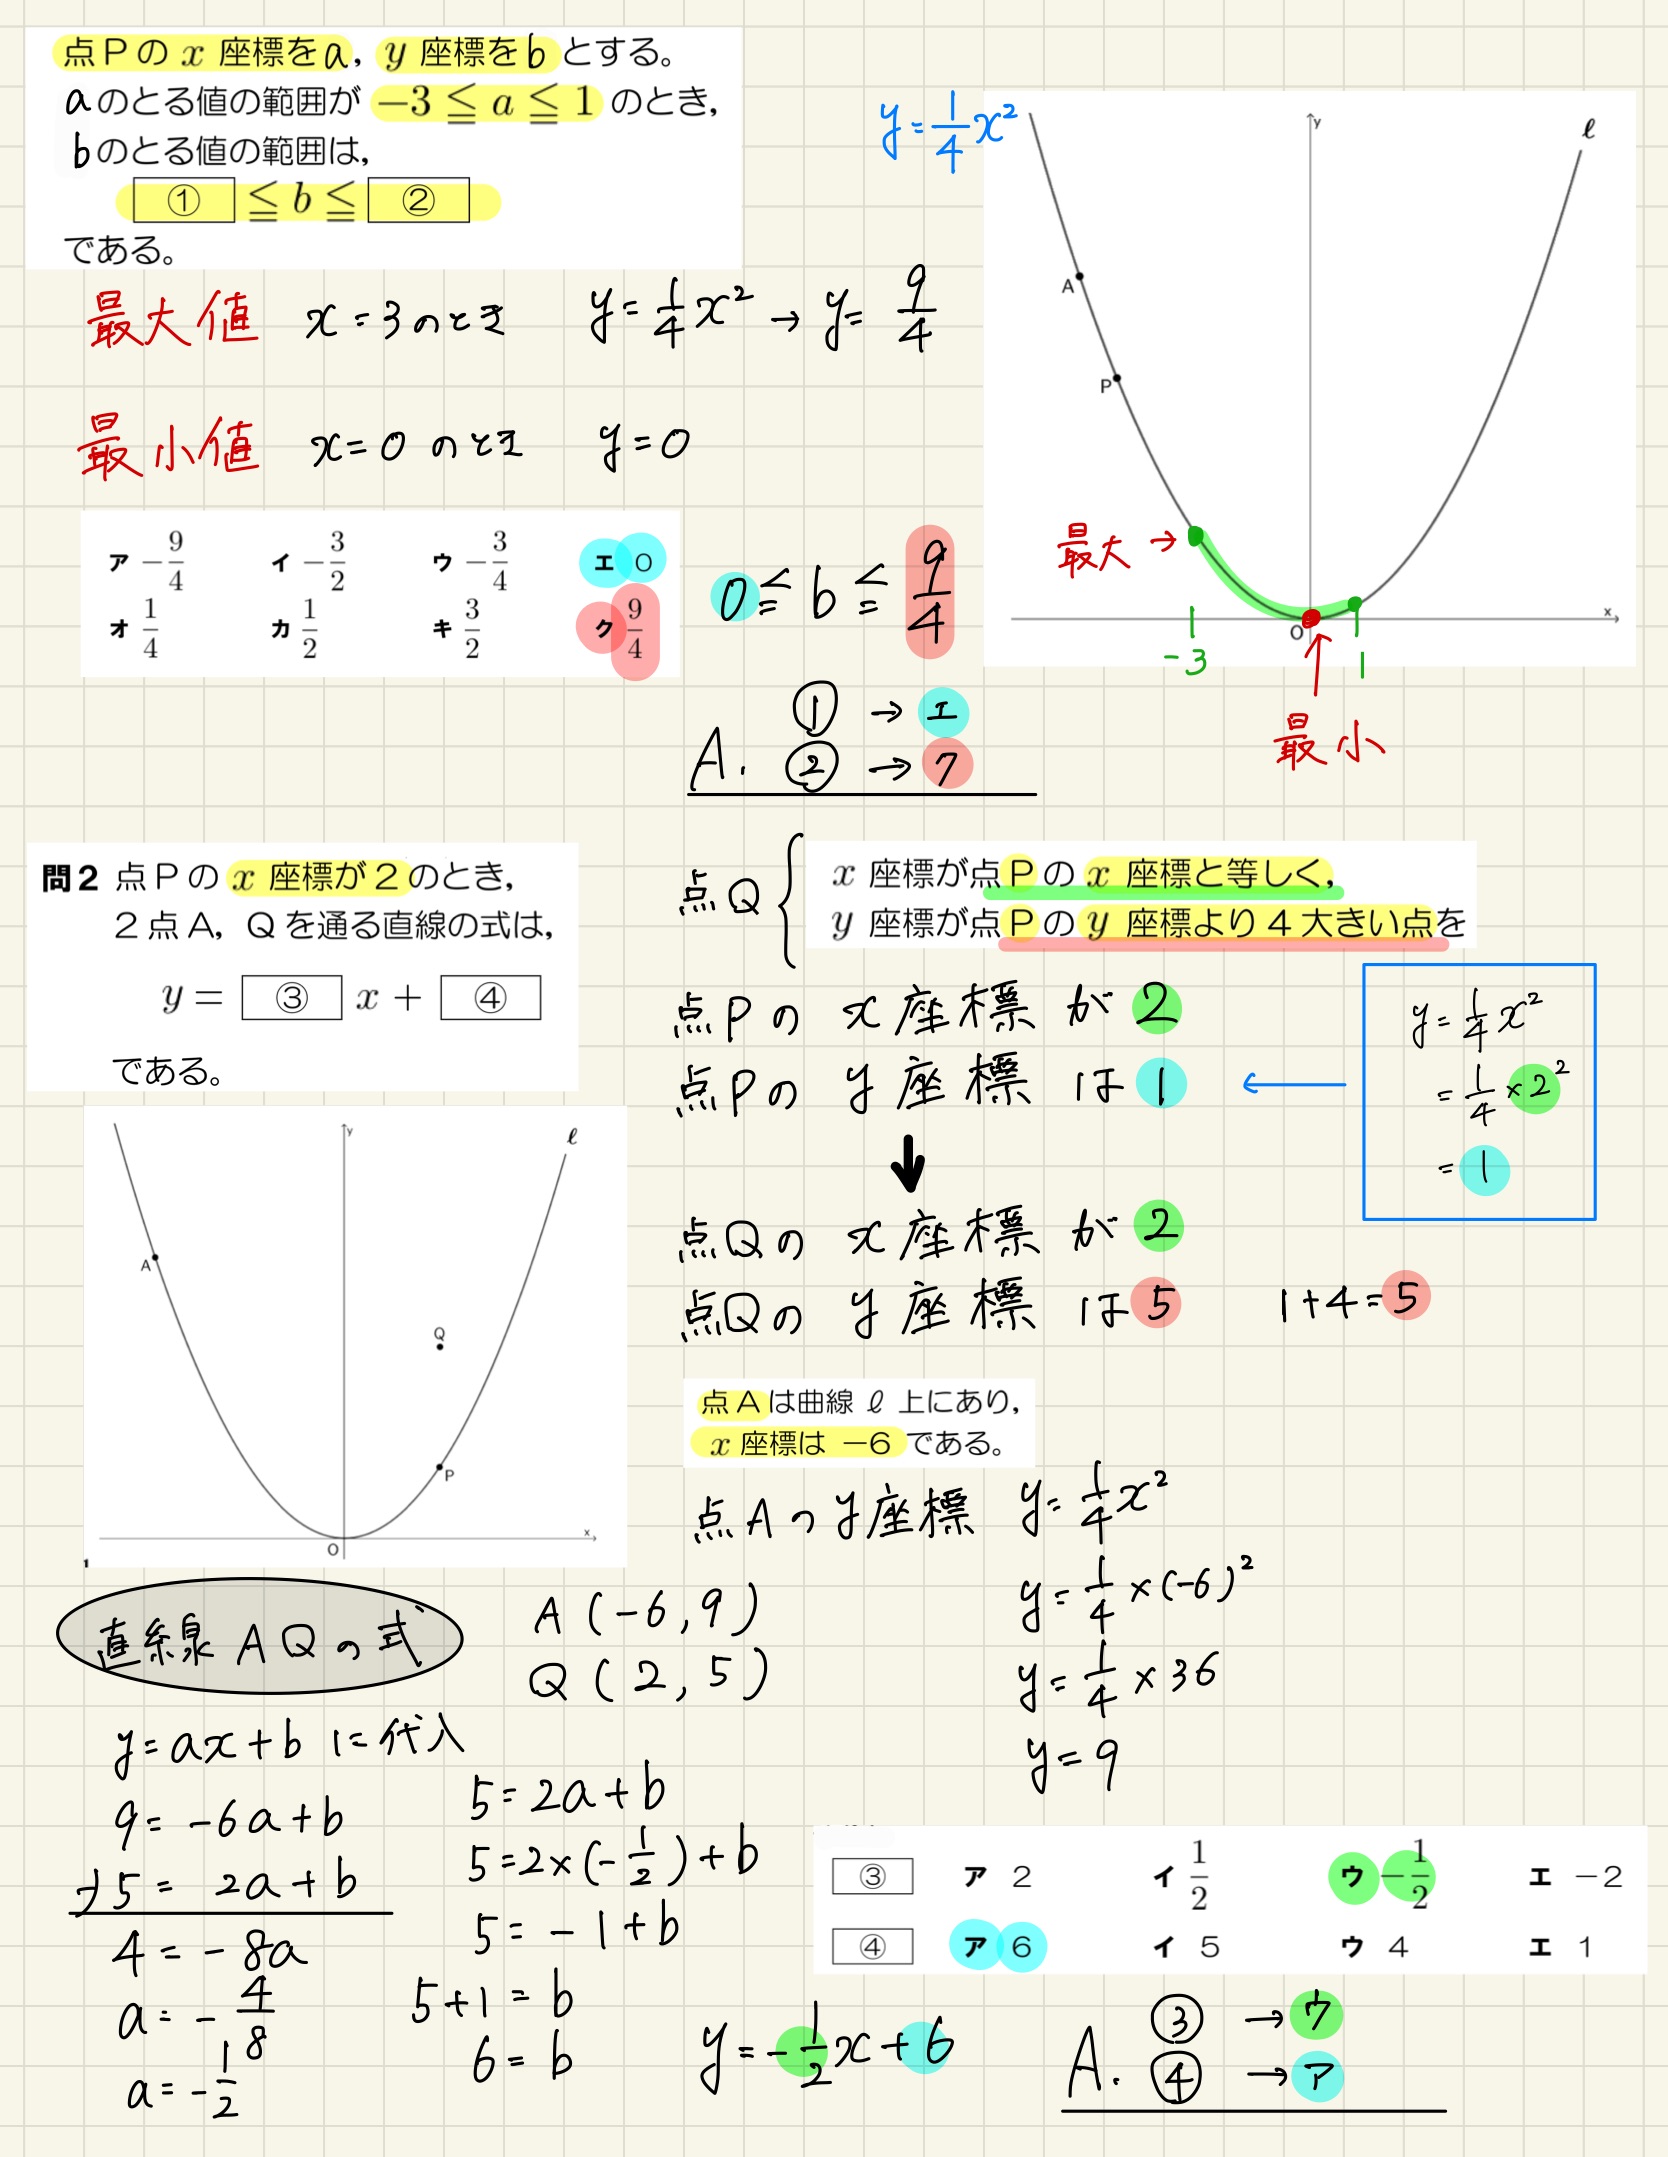 点Pの x 座標をa, y 座標をbとする。
aのとる値の範囲が −3 ≦ a ≦ 1 のとき,
bのとる値の範囲は,
① ≦ b ≦ ②
である。
y=1/4x²
ℓ
y
A
P
x
O
最大→
-3
1
最小
最大値 x=3のとき y=1/4x² → y=9/4
最小値 x=0のとき y=0
ア −9/4 イ −3/2 ウ −3/4 エ 0
オ 1/4 カ 1/2 キ 3/2 ク 9/4
0≦b≦9/4
A. ①→エ
②→ク
問2 点Pの x 座標が2のとき,
2点A, Qを通る直線の式は,
y = ③ x + ④
である。
点Q{ x 座標が点Pの x 座標と等しく,
y 座標が点Pの y 座標より4大きい点を
点Pの x座標が2
点Pの y座標は1 ←
y=1/4x²
=1/4×2²
=1
↓
点Qの x座標が2
点Qの y座標は5 1+4=5
y
ℓ
A
Q
P
x
O
点Aは曲線 ℓ 上にあり,
x 座標は −6 である。
点Aのy座標 y=1/4x²
y=1/4×(-6)²
y=1/4×36
y=9
直線AQの式
A(-6,9)
Q(2,5)
y=ax+bに代入
9=-6a+b
-)5= 2a+b
4=-8a
a=-4/8
a=-1/2
5=2a+b
5=2×(-1/2)+b
5=-1+b
5+1=b
6=b
③ ア 2 イ 1/2 ウ −1/2 エ −2
④ ア 6 イ 5 ウ 4 エ 1
y=-1/2x+6
A. ③→ウ
④→ア